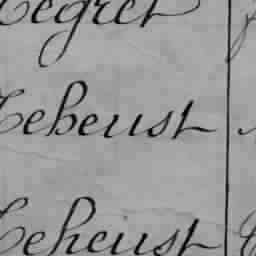 Tegret
Tebeust
Teheust